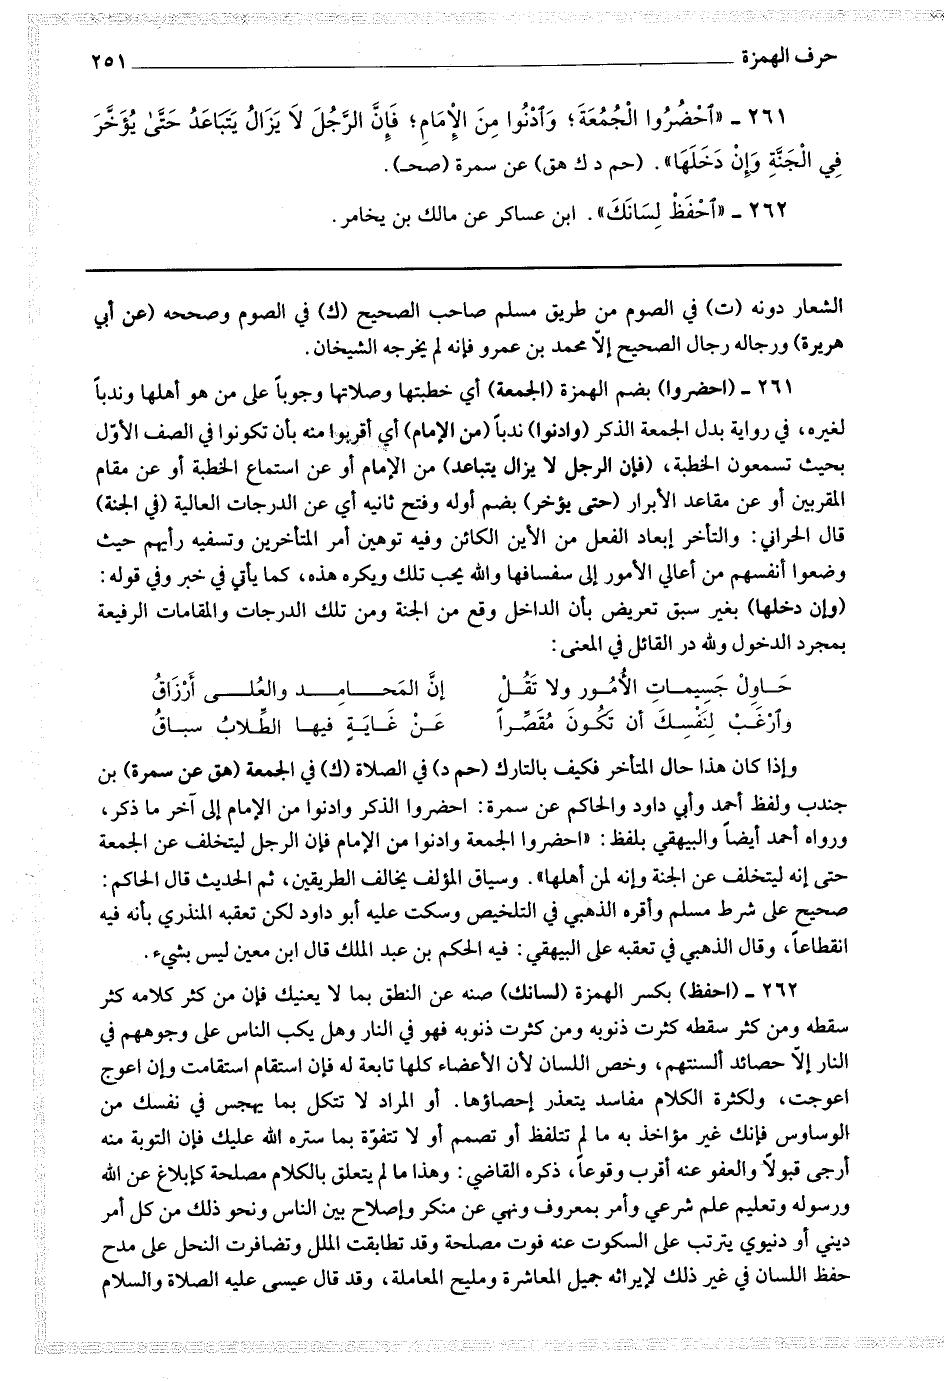 حرف الهمزة ٢٥١
٢٦١ ـ «ٱحْضُرُوا الْجُمُعَةَ؛ وَٱدْنُوا مِنَ الْإِمَامِ؛ فَإِنَّ الرَّجُلَ لَا يَزَالُ يَتَبَاعَدُ حَتَّىٰ يُؤَخَّرَ
فِي الْجَنَّةِ وَإِنْ دَخَلَهَا». (حم د ك هق) عن سمرة (صحـ).
٢٦٢ ـ «ٱحْفَظْ لِسَانَكَ». ابن عساكر عن مالك بن يخامر.
الشعار دونه (ت) في الصوم من طريق مسلم صاحب الصحيح (ك) في الصوم وصححه (عن أبي
هريرة) ورجاله رجال الصحيح إلّا محمد بن عمرو فإنه لم يخرجه الشيخان.
٢٦١ ـ (احضروا) بضم الهمزة (الجمعة) أي خطبتها وصلاتها وجوباً على من هو أهلها وندباً
لغيره، في رواية بدل الجمعة الذكر (وادنوا) ندباً (من الإمام) أي أقربوا منه بأن تكونوا في الصف الأوّل
بحيث تسمعون الخطبة، (فإن الرجل لا يزال يتباعد) من الإمام أو عن استماع الخطبة أو عن مقام
المقربين أو عن مقاعد الأبرار (حتى يؤخر) بضم أوله وفتح ثانيه أي عن الدرجات العالية (في الجنة)
قال الحراني: والتأخر إبعاد الفعل من الأين الكائن وفيه توهين أمر المتأخرين وتسفيه رأيهم حيث
وضعوا أنفسهم من أعالي الأمور إلى سفسافها والله يحب تلك ويكره هذه، كما يأتي في خبر وفي قوله:
(وإن دخلها) بغير سبق تعريض بأن الداخل وقع من الجنة ومن تلك الدرجات والمقامات الرفيعة
بمجرد الدخول ولله در القائل في المعنى:
حَـاوِلْ جَسِيمـاتِ الأُمُـور ولا تَقُـلْ إنَّ المَحَـــامِـــد والعُلـــى أَرْزَاقُ
وٱرْغَـبْ لِنَفْسِـكَ أن تَكُـونَ مُقَصِّـراً عَـنْ غَـايَـةٍ فيهـا الطِّـلَابُ سبـاقُ
وإذا كان هذا حال المتأخر فكيف بالتارك (حم د) في الصلاة (ك) في الجمعة (هق عن سمرة) بن
جندب ولفظ أحمد وأبي داود والحاكم عن سمرة: احضروا الذكر وادنوا من الإمام إلى آخر ما ذكر،
ورواه أحمد أيضاً والبيهقي بلفظ: «احضروا الجمعة وادنوا من الإمام فإن الرجل ليتخلف عن الجمعة
حتى إنه ليتخلف عن الجنة وإنه لمن أهلها». وسياق المؤلف يخالف الطريقين، ثم الحديث قال الحاكم:
صحيح على شرط مسلم وأقره الذهبي في التلخيص وسكت عليه أبو داود لكن تعقبه المنذري بأنه فيه
انقطاعاً، وقال الذهبي في تعقبه على البيهقي: فيه الحكم بن عبد الملك قال ابن معين ليس بشيء.
٢٦٢ ـ (احفظ) بكسر الهمزة (لسانك) صنه عن النطق بما لا يعنيك فإن من كثر كلامه كثر
سقطه ومن كثر سقطه كثرت ذنوبه ومن كثرت ذنوبه فهو في النار وهل يكب الناس على وجوههم في
النار إلّا حصائد ألسنتهم، وخص اللسان لأن الأعضاء كلها تابعة له فإن استقام استقامت وإن اعوج
اعوجت، ولكثرة الكلام مفاسد يتعذر إحصاؤها. أو المراد لا تتكل بما يهجس في نفسك من
الوساوس فإنك غير مؤاخذ به ما لم تتلفظ أو تصمم أو لا تتفوّة بما ستره الله عليك فإن التوبة منه
أرجى قبولاً والعفو عنه أقرب وقوعاً، ذكره القاضي: وهذا ما لم يتعلق بالكلام مصلحة كإبلاغ عن الله
ورسوله وتعليم علم شرعي وأمر بمعروف ونهي عن منكر وإصلاح بين الناس ونحو ذلك من كل أمر
ديني أو دنيوي يترتب على السكوت عنه فوت مصلحة وقد تطابقت الملل وتضافرت النحل على مدح
حفظ اللسان في غير ذلك لإيراثه جميل المعاشرة ومليح المعاملة، وقد قال عيسى عليه الصلاة والسلام